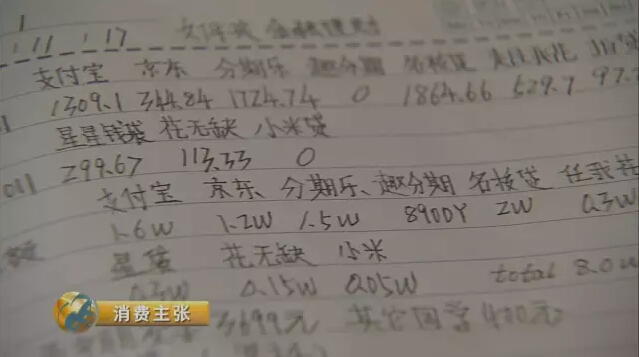 11.17
支付宝 京东 分期乐 趣分期 名校贷
1309.1 344.84 1724.74 0 1864.66 529.7 97.2
星星钱袋 花无缺 小米贷
299.67 113.33 0
支付宝 京东、分期乐、趣分期 名校贷 任我花
1.6W 1.2W 1.5W 8900Y 2W 0.3W
星袋 花无缺 小米
0.3W 0.15W 0.05W total 8.0W
消费主张 3699元 其它同学400元